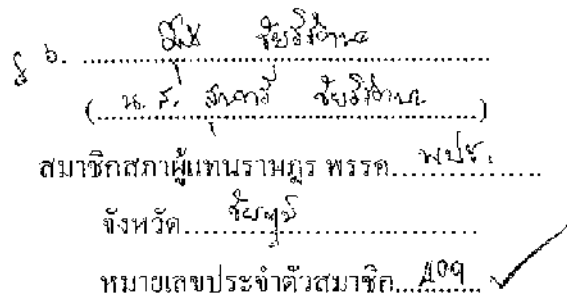 ๖.
(น.ส. สุนทรี ชัยวิรัตนะ)
สมาชิกสภาผู้แทนราษฎร พรรค พปชร.
จังหวัด ชัยภูมิ
หมายเลขประจำตัวสมาชิก 409